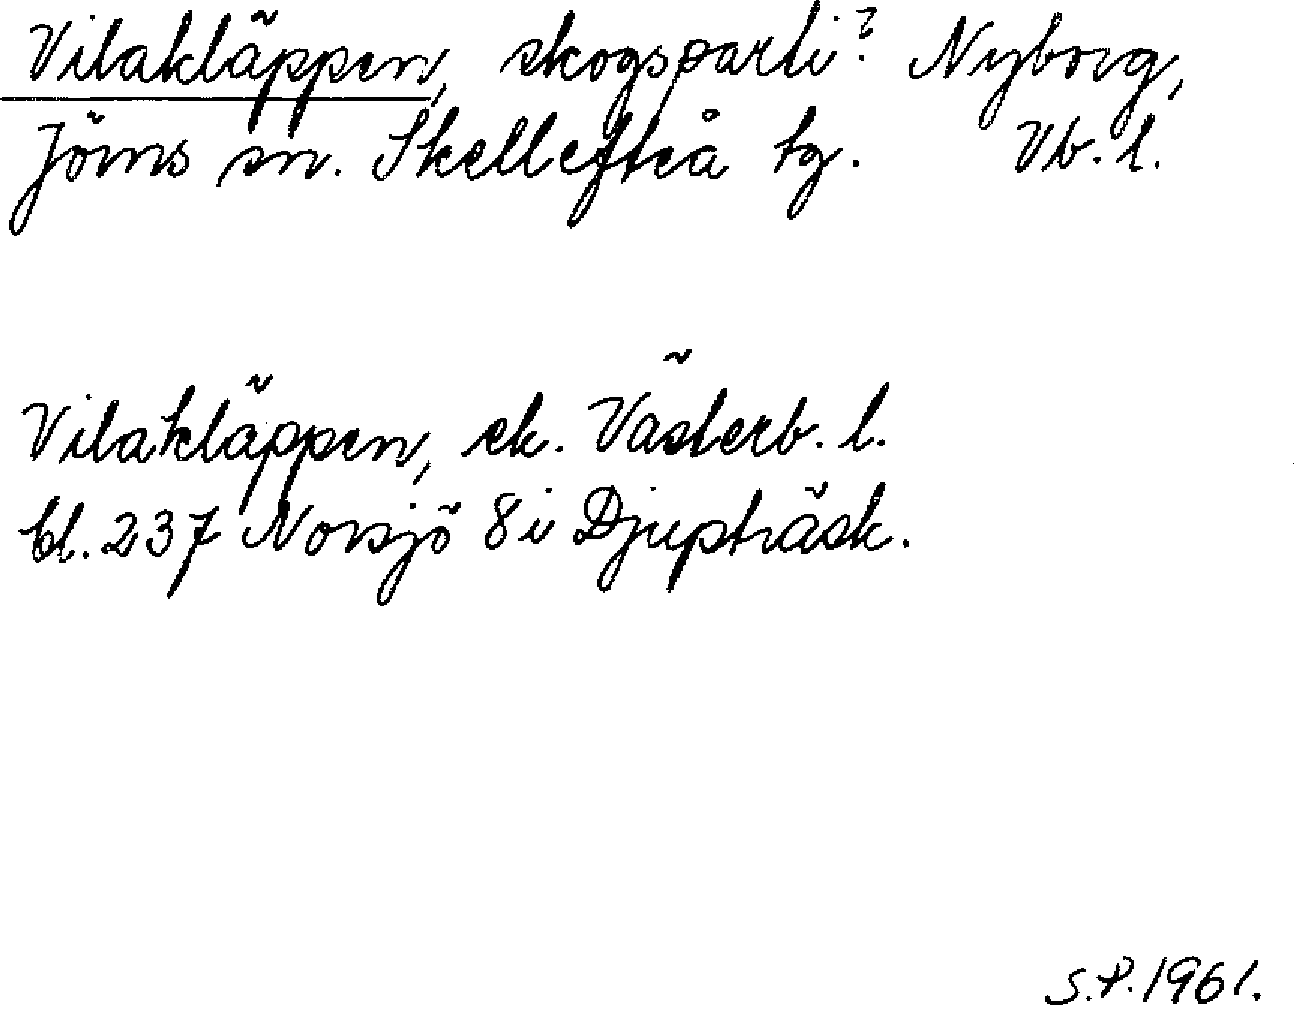 Vilakläppen, skogsparti? Nyborg,
Jörns sn. Skellefteå tg. Vb. l.
Vilakläppen, ek. Västerb. l.
bl. 237 Norsjö 8 i Djupträsk.
S.P. 1961.